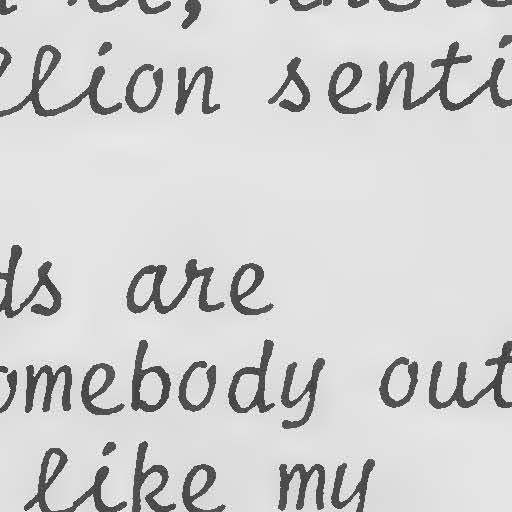 llion senti
ds are
omebody out
like my